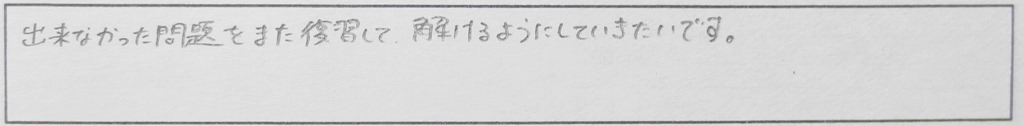 出来なかった問題をまた復習して、解けるようにしていきたいです。